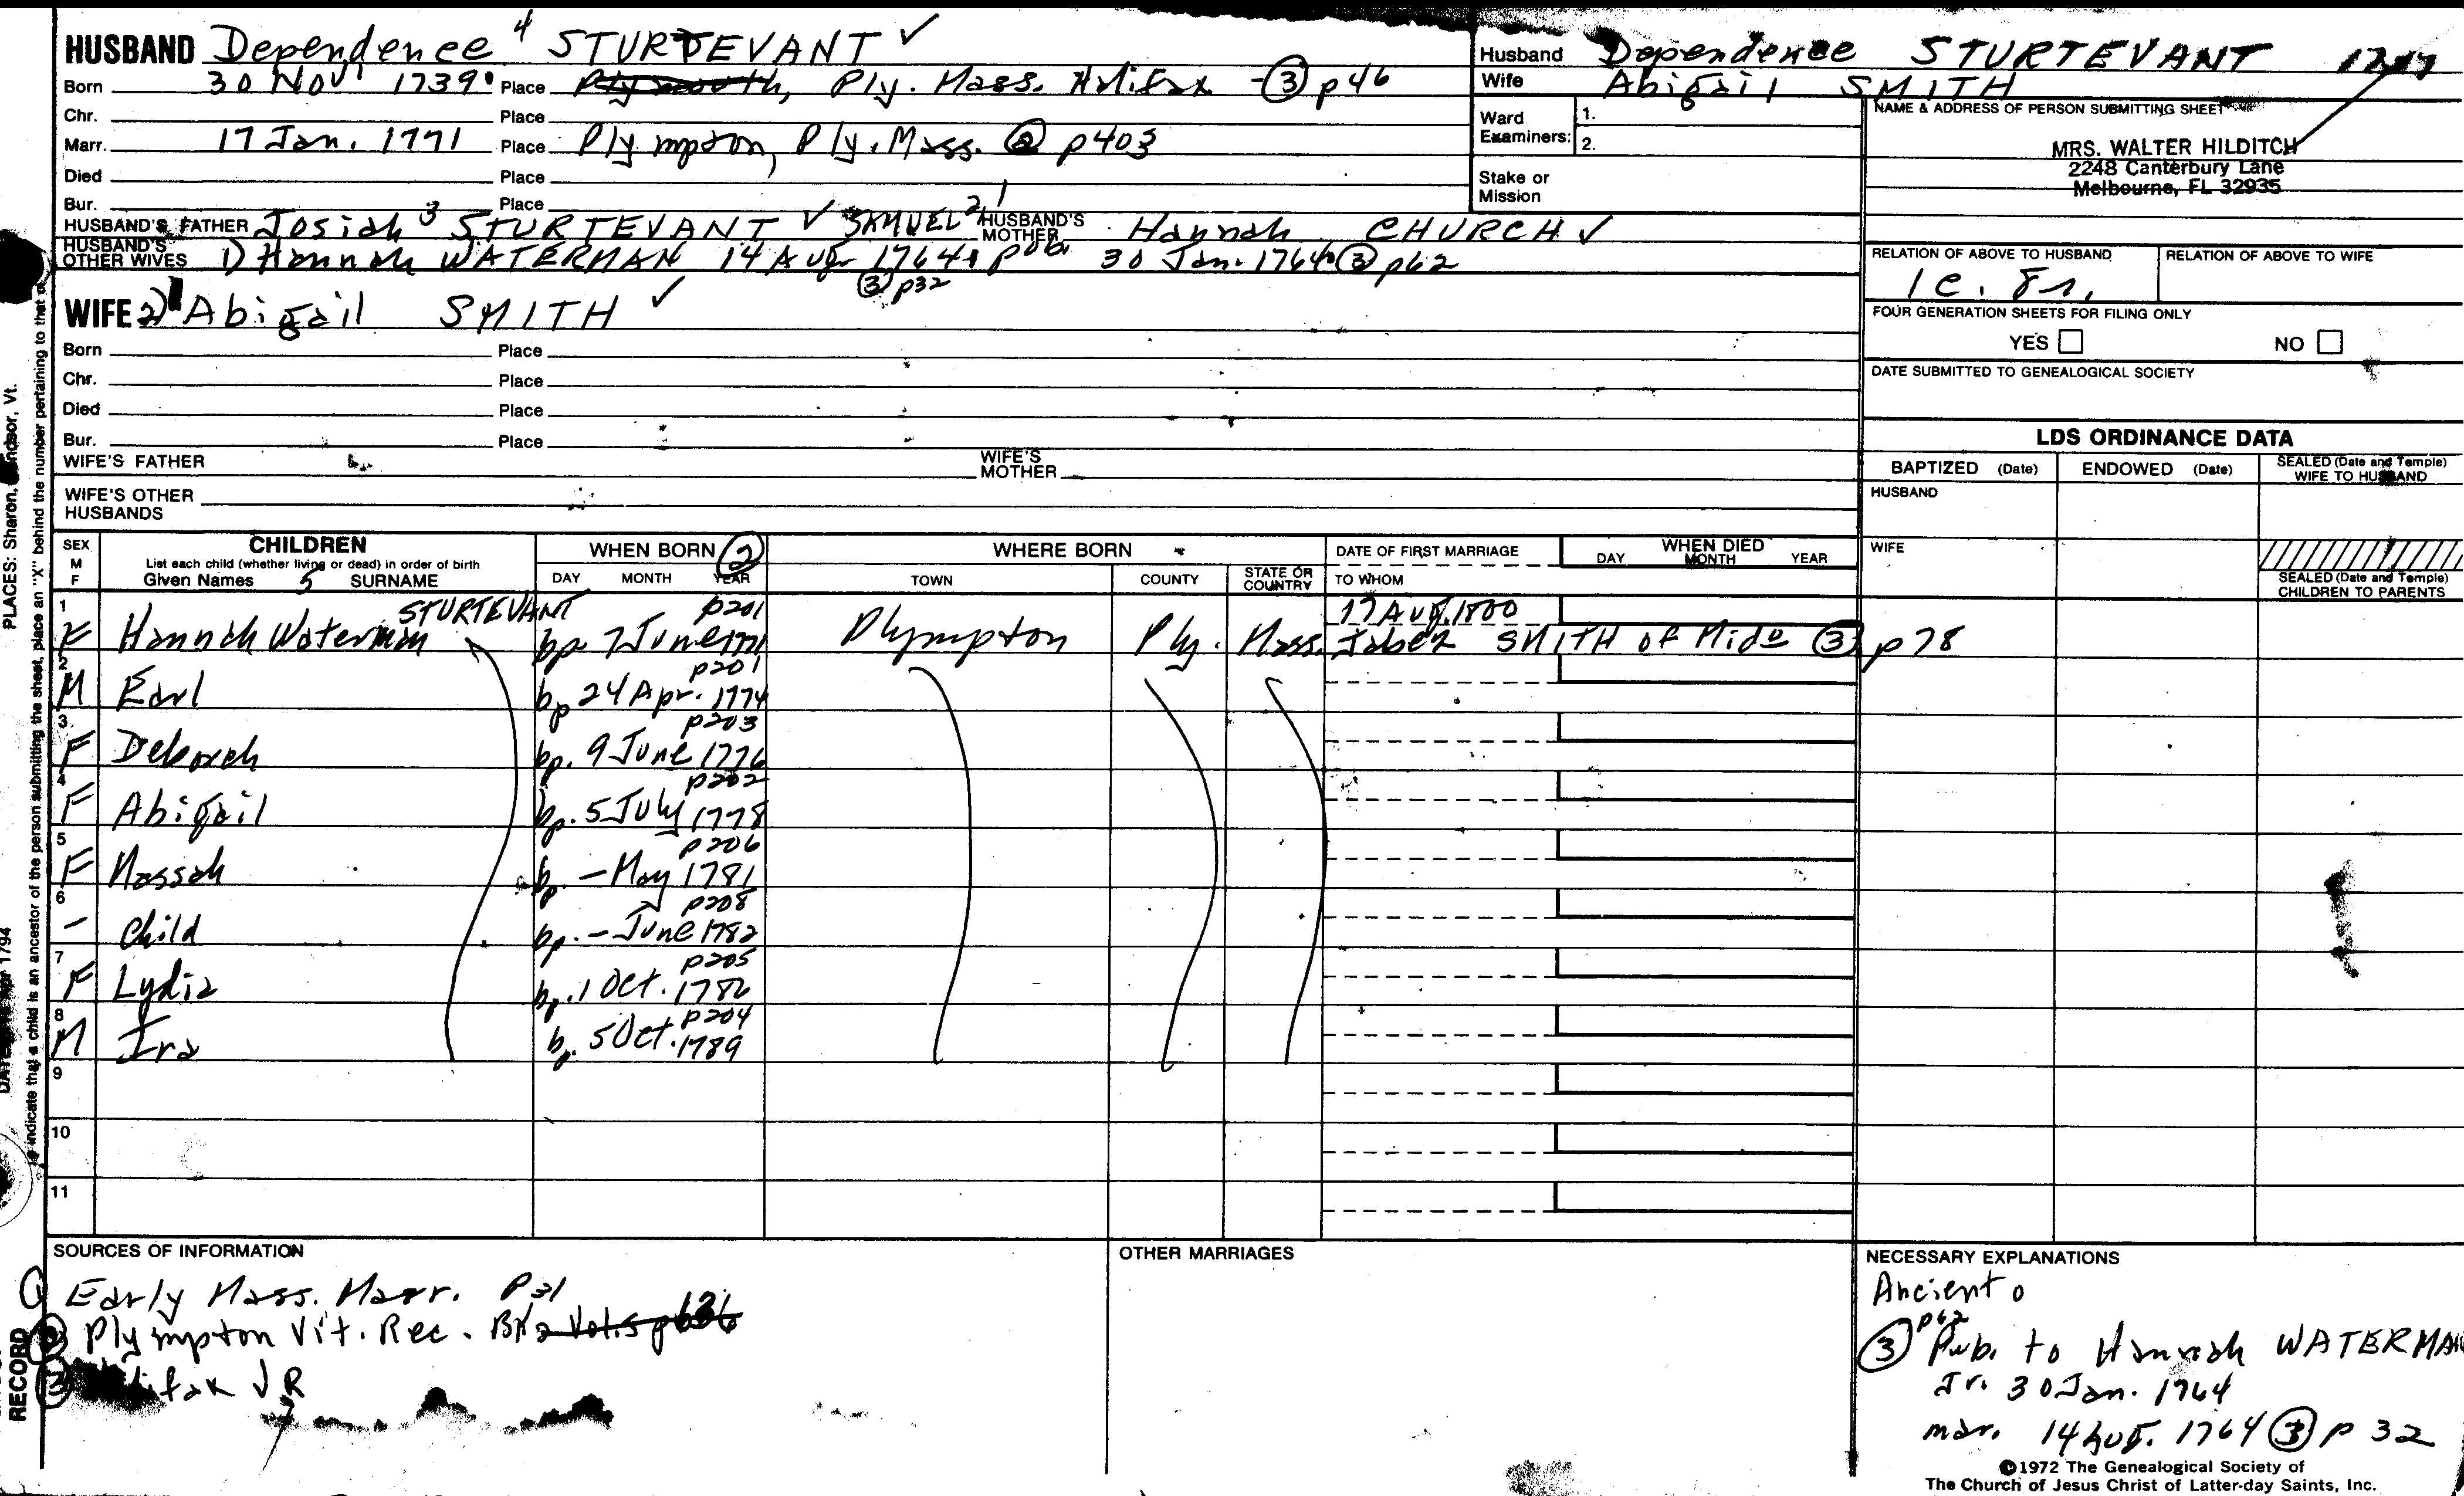 HUSBAND Dependence 4 STURTEVANT ✓
Born 30 Nov 1739 Place Plymouth, Ply. Mass. Halifax - ③ p46
Chr. Place
Marr. 17 Jan. 1771 Place Plympton, Ply. Mass. ② p403
Died Place
Bur. Place
HUSBAND'S FATHER Josiah 3 STURTEVANT ✓ SAMUEL 2, 1 HUSBAND'S MOTHER Hannah CHURCH ✓
HUSBAND'S OTHER WIVES 1) Hannah WATERMAN 14 Aug 1764 30 Jan. 1764 ③ p62
③ p32
WIFE 2) Abigail SMITH ✓
Born Place
Chr. Place
Died Place
Bur. Place
WIFE'S FATHER WIFE'S MOTHER
WIFE'S OTHER HUSBANDS
Husband Dependence STURTEVANT
Wife Abigail SMITH
Ward Examiners: 1.
2.
Stake or Mission
NAME & ADDRESS OF PERSON SUBMITTING SHEET
MRS. WALTER HILDITCH
2248 Canterbury Lane
Melbourne, FL 32935
RELATION OF ABOVE TO HUSBAND RELATION OF ABOVE TO WIFE
FOUR GENERATION SHEETS FOR FILING ONLY
YES NO
DATE SUBMITTED TO GENEALOGICAL SOCIETY
LDS ORDINANCE DATA
BAPTIZED (Date) ENDOWED (Date) SEALED (Date and Temple) WIFE TO HUSBAND
HUSBAND
WIFE
SEALED (Date and Temple) CHILDREN TO PARENTS
SEX M F CHILDREN WHEN BORN ② WHERE BORN DATE OF FIRST MARRIAGE WHEN DIED
List each child (whether living or dead) in order of birth
Given Names 5 SURNAME DAY MONTH YEAR TOWN COUNTY STATE OR COUNTRY TO WHOM DAY MONTH YEAR
1 STURTEVANT p201 17 Aug. 1800
F Hannah Waterman bp. 7 June 1771 Plympton Ply. Mass. Jabez SMITH of Mido ③ p78
2 p201
M Earl bp 24 Apr. 1774
3 p203
F Deborah bp. 9 June 1776
4 p202
F Abigail bp. 5 July 1778
5 p206
F Nassah bp. - May 1781
6 p208
- Child bp. - June 1782
7 p205
F Lydia bp. 1 Oct. 1786
8 p204
M Ira bp. 5 Oct. 1789
9
10
11
SOURCES OF INFORMATION
① Early Mass. Marr. p31
② Plympton Vit. Rec. Bk 2 Vol. 5 p
③ VR
OTHER MARRIAGES
NECESSARY EXPLANATIONS
Ancient
p62
③ Pub. to Hannah WATERMAN
Jr. 30 Jan. 1764
mar. 14 Aug. 1764 ③ p 32
©1972 The Genealogical Society of
The Church of Jesus Christ of Latter-day Saints, Inc.
PLACES: Sharon, Windsor, Vt.
to indicate that a child is an ancestor of the person submitting the sheet, place an "X" behind the number pertaining to that
Apr 1794
RECORD